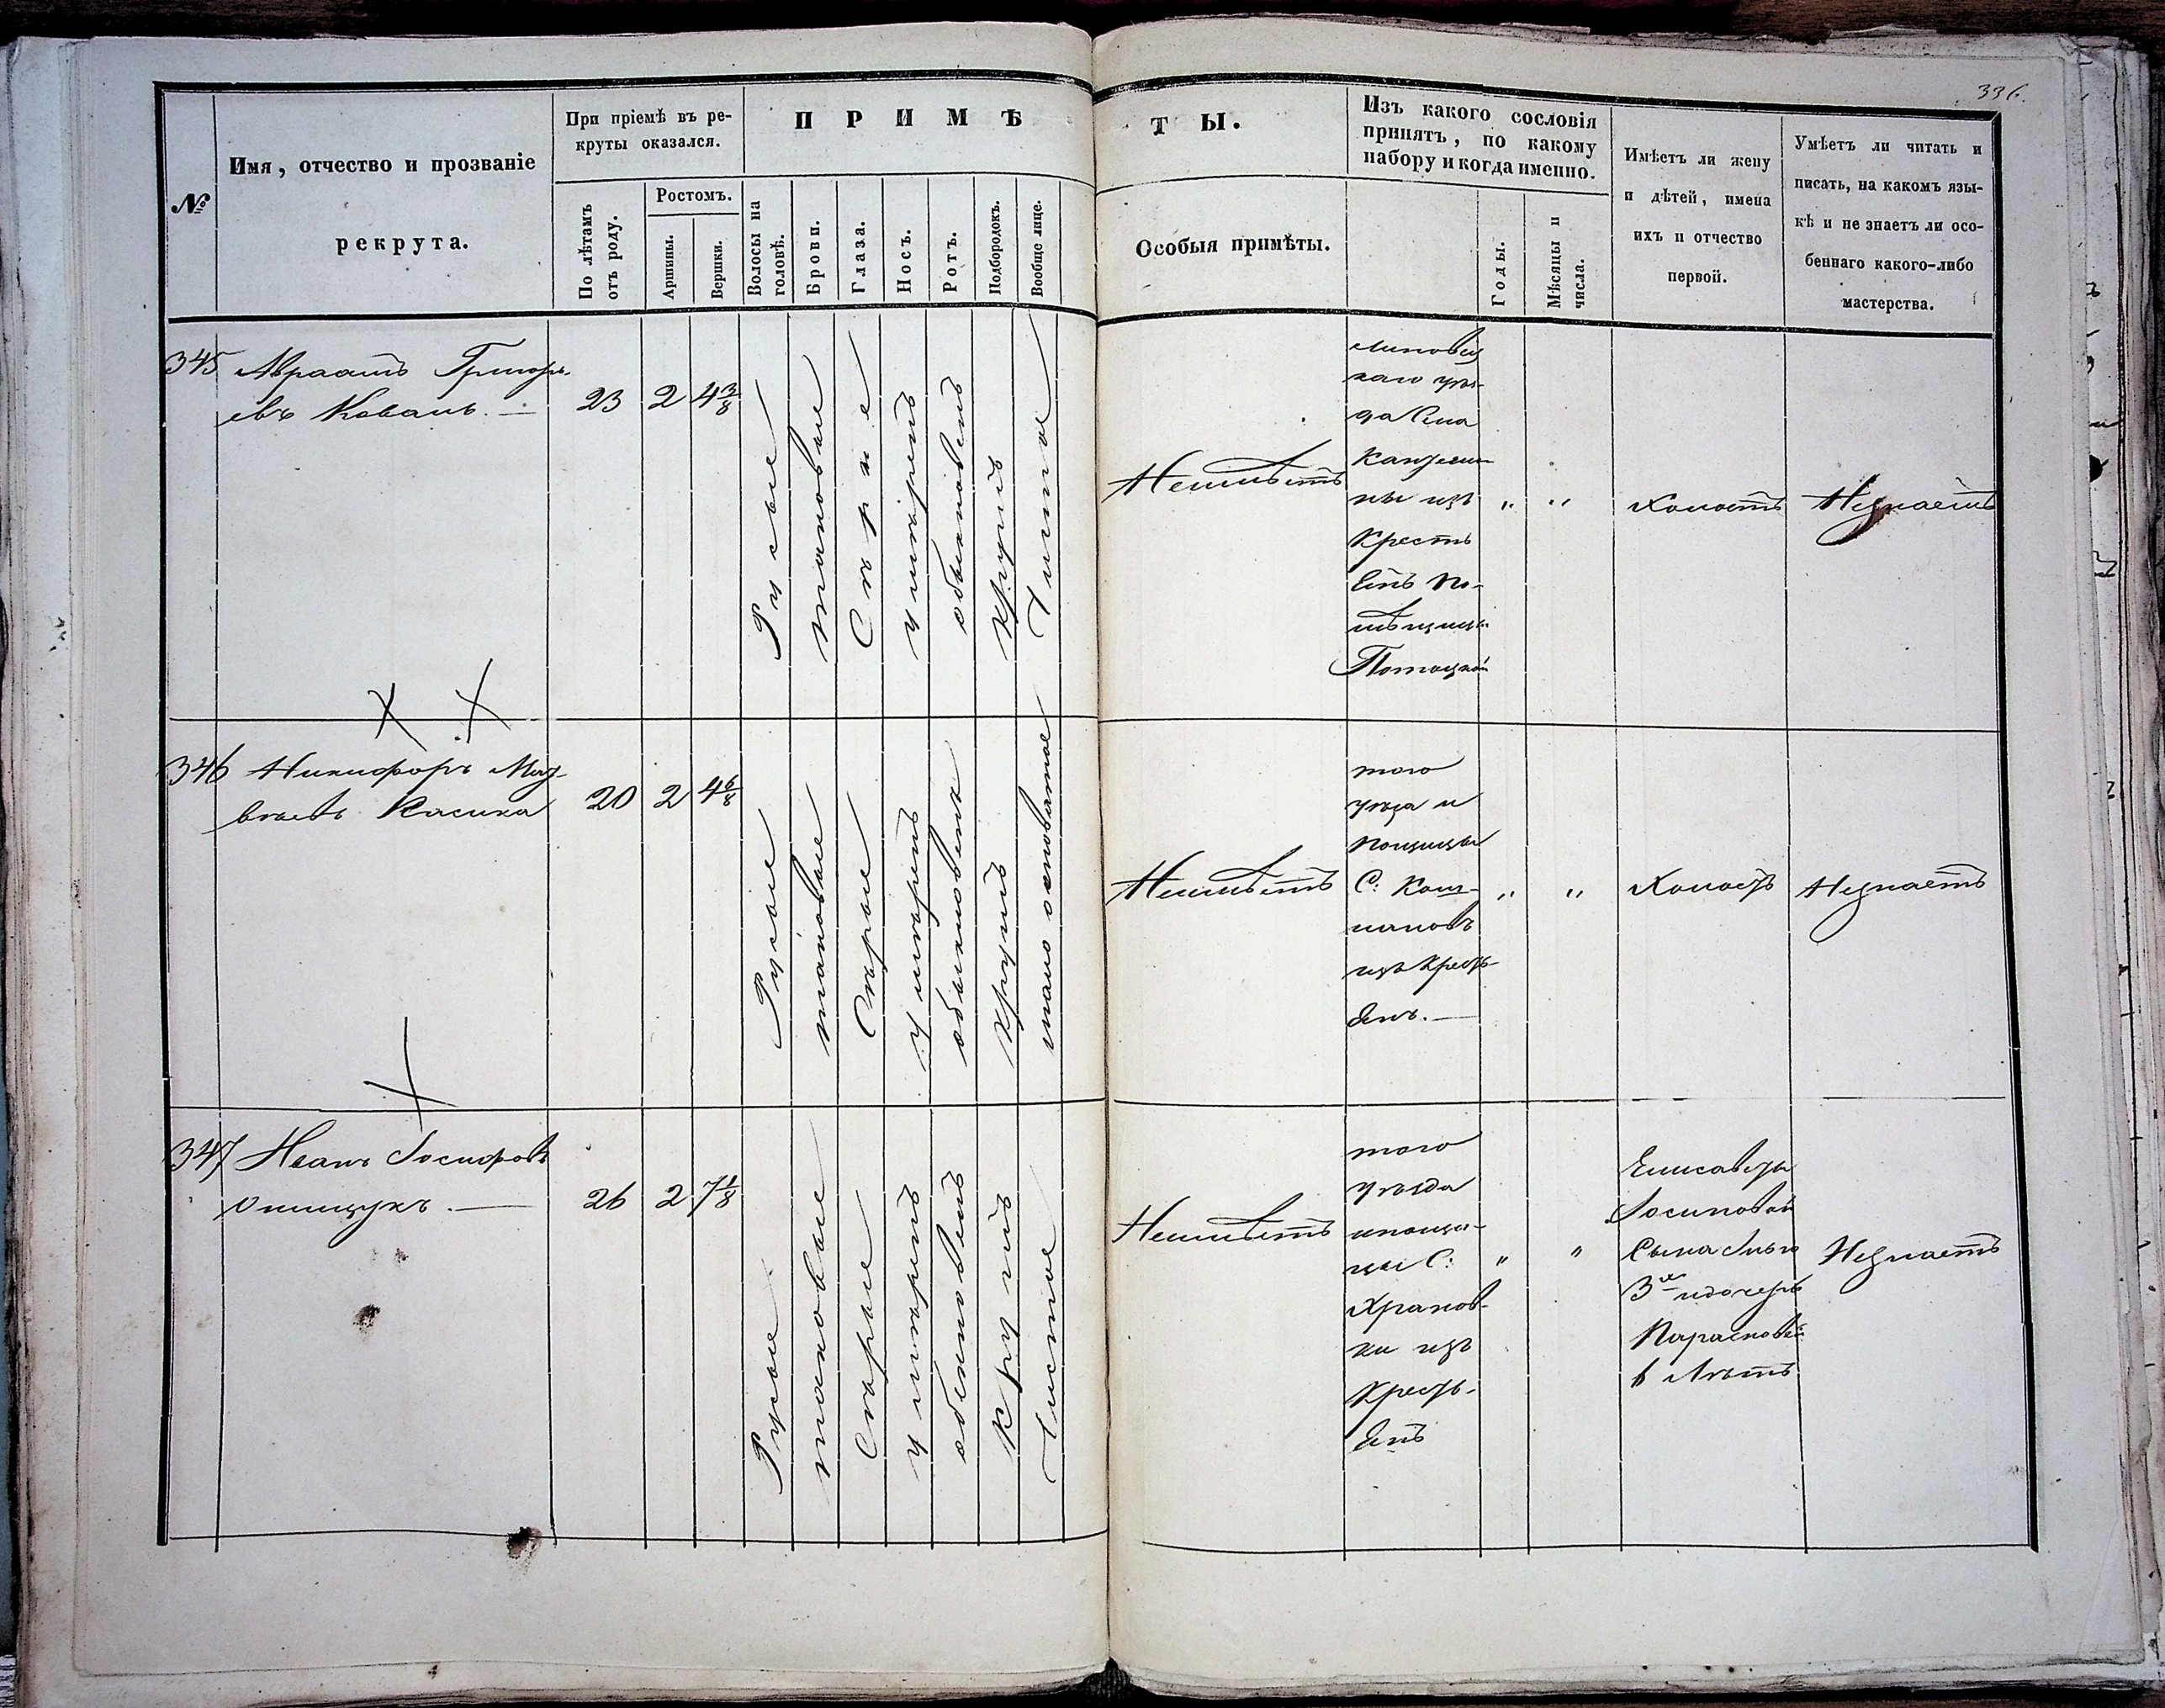 336.
№
Имя, отчество и прозваніе
рекрута.
При пріемѣ въ ре-
круты оказался.
По лѣтамъ
отъ роду.
Ростомъ.
Аршины.
Вершки.
ПРИМѢ
Волосы на
головѣ.
Брови.
Глаза.
Носъ.
Ротъ.
Подбородокъ.
Вообще лице.
ТЫ.
Особыя примѣты.
Изъ какого сословія
принятъ, по какому
набору и когда именно.
Годы.
Мѣсяцы и
числа.
Имѣетъ ли жену
и дѣтей, имена
ихъ и отчество
первой.
Умѣетъ ли читать и
писать, на какомъ язы-
кѣ и не знаетъ ли осо-
беннаго какого-либо
мастерства.
345 Авраамъ Григорь-
евъ Коваль. —
23 2 4 3/8
Русые
таковые
Сѣрые
умѣренъ
обыкновенъ
Круглъ
Чистое
Неимѣетъ
каго уѣз-
да Села
ны изъ
Кресть
Енъ По-
мѣщицы
Потоцкой
" "
Холостъ
Незнаетъ
346 Никифоръ Мат-
вѣевъ Касика
20 2 4 6/8
Русые
таковые
Сѣрые
умѣренъ
обыкновенъ
Круглъ
мало осповатое
Неимѣетъ
того
уѣзда и
помщицы
изъ крест-
Янъ. —
" "
Холостъ
Незнаетъ
347 Иванъ Іосифовъ
Онищукъ. —
26 2 7 1/8
Русые
таковые
Сѣрые
умѣренъ
обыкновенъ
Круглъ
Чистое
Неимѣетъ
того
уѣзда
ипомщи-
цы С:
Кранов-
ки изъ
Кресть-
Янъ
" "
Елисаветы
Іосиповой
Сына
3 идочерь
Парасковiи
6 Лѣтъ
Незнаетъ